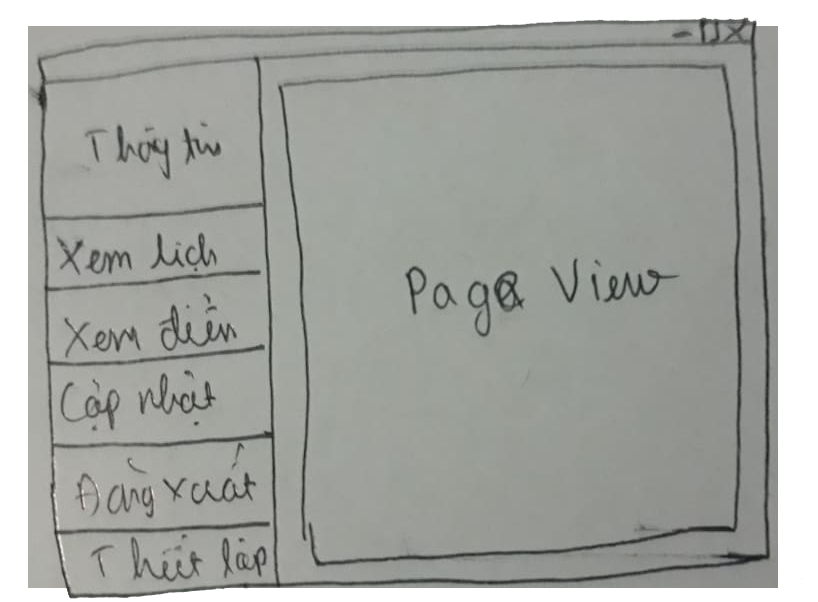 Thông tin
Xem lịch
Xem điểm
Cập nhật
Đăng xuất
Thiết lập
Page View